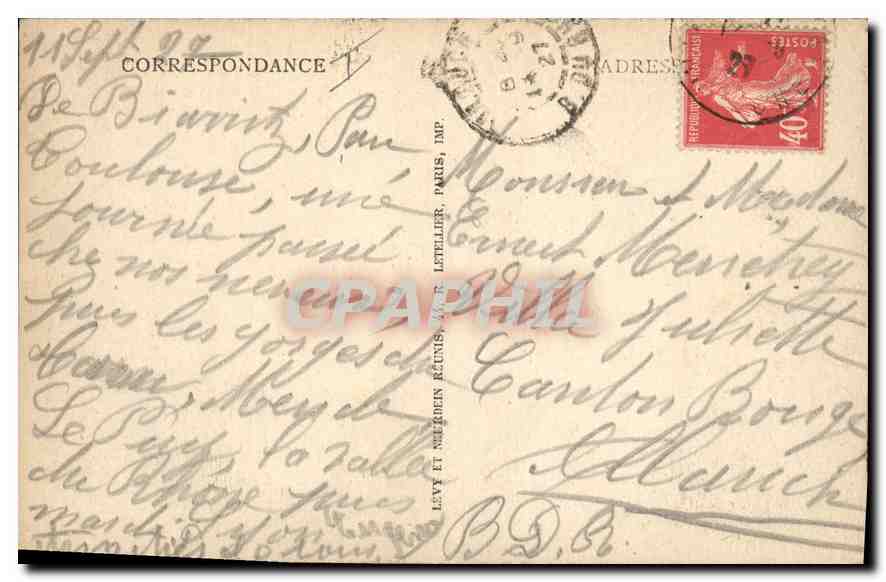 11 Sept 27
CORRESPONDANCE
De Biarritz, Par
Toulouse, une
journée passé
chez nos neveux,
puis les gorges du
Tarn, Mende
Le Puy, la vallée
du Rhône puis
mardi Lyon
LÉVY ET NEURDEIN RÉUNIS, 44, R. LETELLIER, PARIS, IMP.
ADRESSE
RÉPUBLIQUE FRANÇAISE
POSTES
40
27
Monsieur et Madame
Ernest
Villa Juliette
Canton Rouge
Allauch
B. D. R.
CPAPHIL